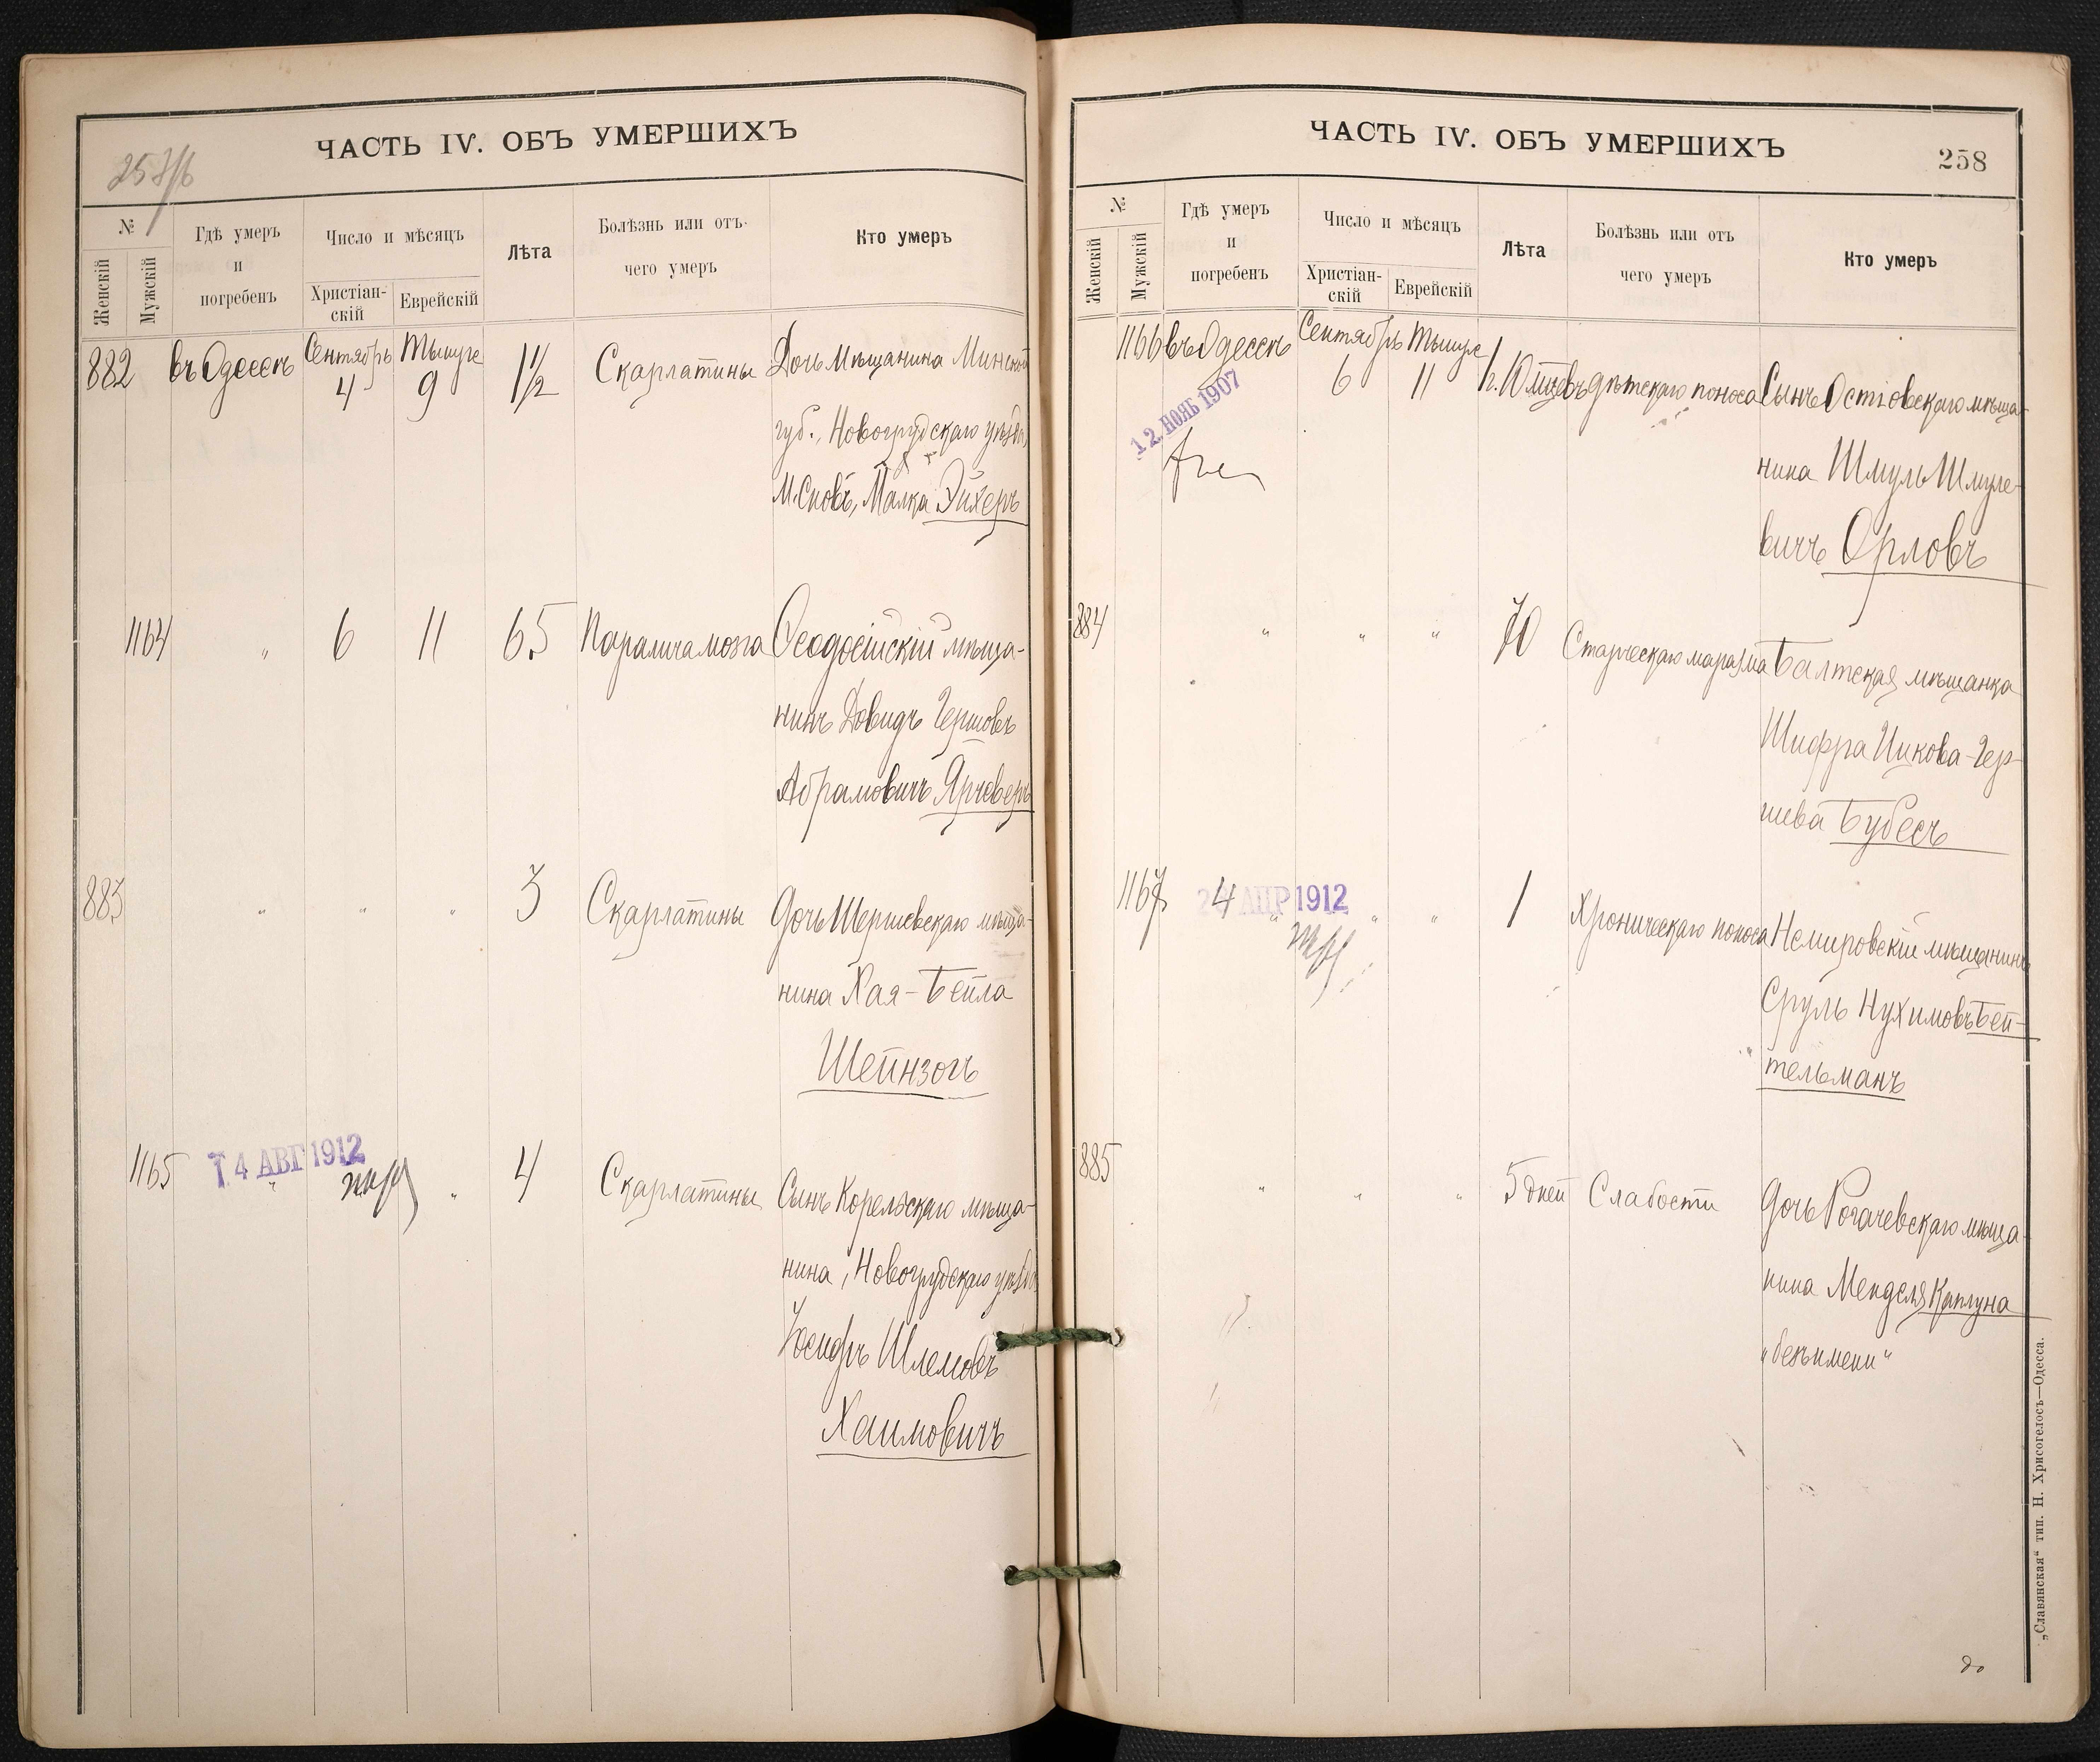 ЧАСТЬ IV. ОБЪ УМЕРШИХЪ
№
Женскій
Мужскій
Гдѣ умеръ
и
погребенъ
Число и мѣсяцъ
Христіан-
скій
Еврейскій
Лѣта
Болѣзнь или отъ-
чего умеръ
Кто умеръ
882 въ Одессѣ Сентябрь 4 Тышре 9 1 1/2 Скарлатины Дочь мѣщанина Минской
губ., Новогрудскаго уѣзда,
м. Сновъ, Малка Эйхеръ
1164 " 6 11 65 Паралича мозга Ѳеодосійскій мѣща-
нинъ Довидъ Гершовъ
Абрамовичъ Ярчеверъ
883 " " " 3 Скарлатины Дочь Шершевскаго мѣща-
нина Хая-Бейла
Шейнзонъ
1165 14 АВГ 1912 " " 4 Скарлатины Сынъ Корельскаго мѣща-
нина, Новогрудскаго уѣзда
Іосифъ Шлемовъ
Хаимовичъ
ЧАСТЬ IV. ОБЪ УМЕРШИХЪ
258
№
Женскій
Мужскій
Гдѣ умеръ
и
погребенъ
Число и мѣсяцъ
Христіан-
скій
Еврейскій
Лѣта
Болѣзнь или отъ
чего умеръ
Кто умеръ
1166 въ Одессѣ Сентябрь 6 Тышре 11 1 г. 10 мцевъ дѣтскаго поноса Сынъ мѣща-
12 НОЯБ 1907
нина Шмуль Шмуле-
вичъ Орловъ
884 " " " 70 Старческаго маразма Балтская мѣщанка
Шифра Ицкова-Гер-
шева Бубесъ
1167 АПР 1912 " " " 1 Хроническаго поноса Немировскій мѣщанинъ
Сруль Нухимовъ Бей-
тельманъ
885 " " " 5 дней Слабости Дочь Рогачевскаго мѣща-
нина Менделя Каплуна
"безъ имени"
„Славянская“ тип. Н. Хрисогелосъ—Одесса.